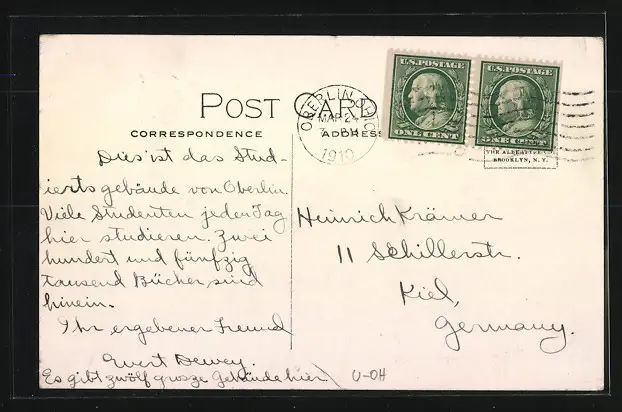 U.S. POSTAGE
U.S. POSTAGE
ONE CENT
ONE CENT
POST CARD
OBERLIN, OHIO
MAR 24
PM
1910
CORRESPONDENCE
ADDRESS
THE ALBERTYPE
BROOKLYN, N. Y.
Dies ist das Stud-
ierts gebäude von Oberlin.
Viele Studenten jeden Tag
hier studieren. Zwei
hundert und fünfzig
tausend Bücher sind
hinein.
Ihr ergebener Freund
Evert Dewey.
Es gibt zwölf grosze Gebäude hier
Heinrich Krämer
11 Schillerstr.
Kiel,
Germany.
U-OH